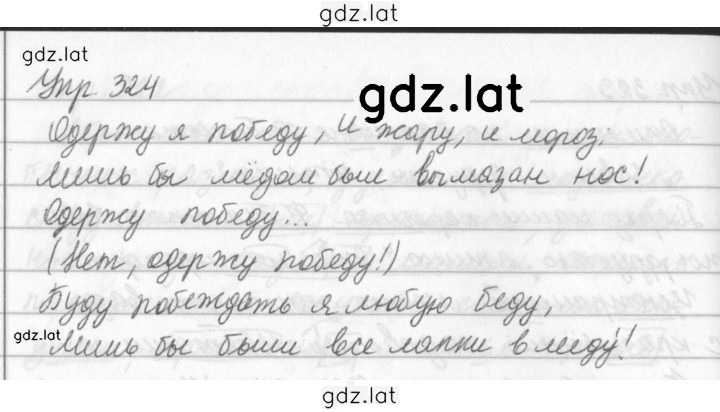 gdz.lat
gdz.lat
Упр. 324
gdz.lat
Одержу я победу, и жару, и мороз:
Лишь бы мёдом был вымазан нос!
Одержу победу...
(Нет, одержу победу!)
Буду побеждать я любую беду,
gdz.lat
Лишь бы были все лапки в меду!
gdz.lat